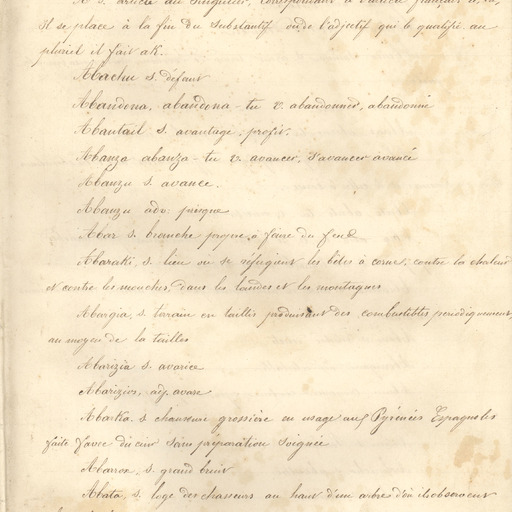 A s. article au singulier, correspondant à l'article français le, la,
Il se place à la fin du substantif ou de l'adjectif qui le qualifie. au
pluriel il fait ak.
Abachu s. défaut
Abandona, abandona-tu v. abandonner, abandonné
Abantail s. avantage, profit.
Abanza abanza-tu v. avancer, s'avancer avancé
Abanzu s. avance.
Abanzu adv. presque
Abar s. branche propre à faire du feu
Abaraki, s. lieu ou se réfugient les bêtes à corne, contre la chaleur
et contre les mouches, dans les landes et les montagnes
Abargia, s. terrain en taillis produisant des combustibles periodiquement,
au moyen de la tailles
Abarizia s. avarice
Abarizios, adj. avare
Abarka. s chaussure grossière en usage aux Pyrénées Espagnoles
faite avec du cuir sans préparation soignée
Abarrox, s. grand bruit
Abata, s. loge des chasseurs au haut d'un arbre d'où ils observent